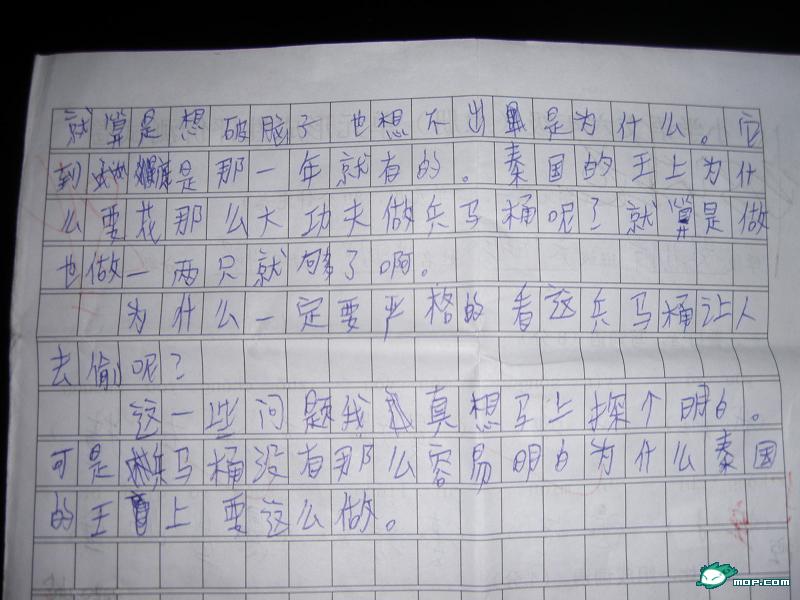 就算是想破脑子也想不出是为什么。它
到底是那一年就有的。秦国的王上为什
么要花那么大功夫做兵马桶呢？就算是做
也做一两只就够了啊。
为什么一定要严格的看这兵马桶让人
去偷呢？
这一些问题我真想马上探个明白。
可是兵马桶没有那么容易明白为什么秦国
的王上要这么做。
MOP.COM